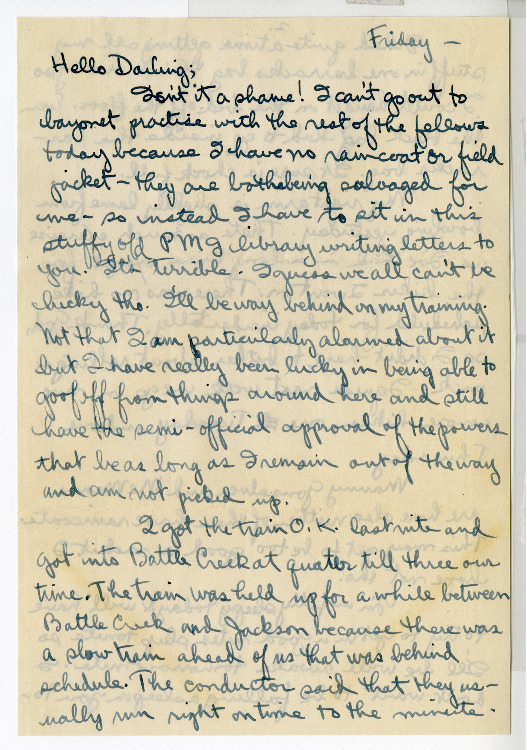 Friday —
Hello Darling;
Isn't it a shame! I can't go out to
bayonet practise with the rest of the fellows
today because I have no raincoat or field
jacket – they are both being salvaged for
me – so instead I have to sit in this
stuffy old PMG library writing letters to
you. It's terrible. I guess we all can't be
lucky tho. I'll be way behind on my training.
Not that I am particularly alarmed about it
but I have really been lucky in being able to
goof off from things around here and still
have the semi-official approval of the powers
that be as long as I remain out of the way
and am not picked up.
I got the train O.K. last nite and
got into Battle Creek at quater till three our
time. The train was held up for a while between
Battle Creek and Jackson because there was
a slow train ahead of us that was behind
schedule. The conductor said that they us-
ually run right on time to the minute.